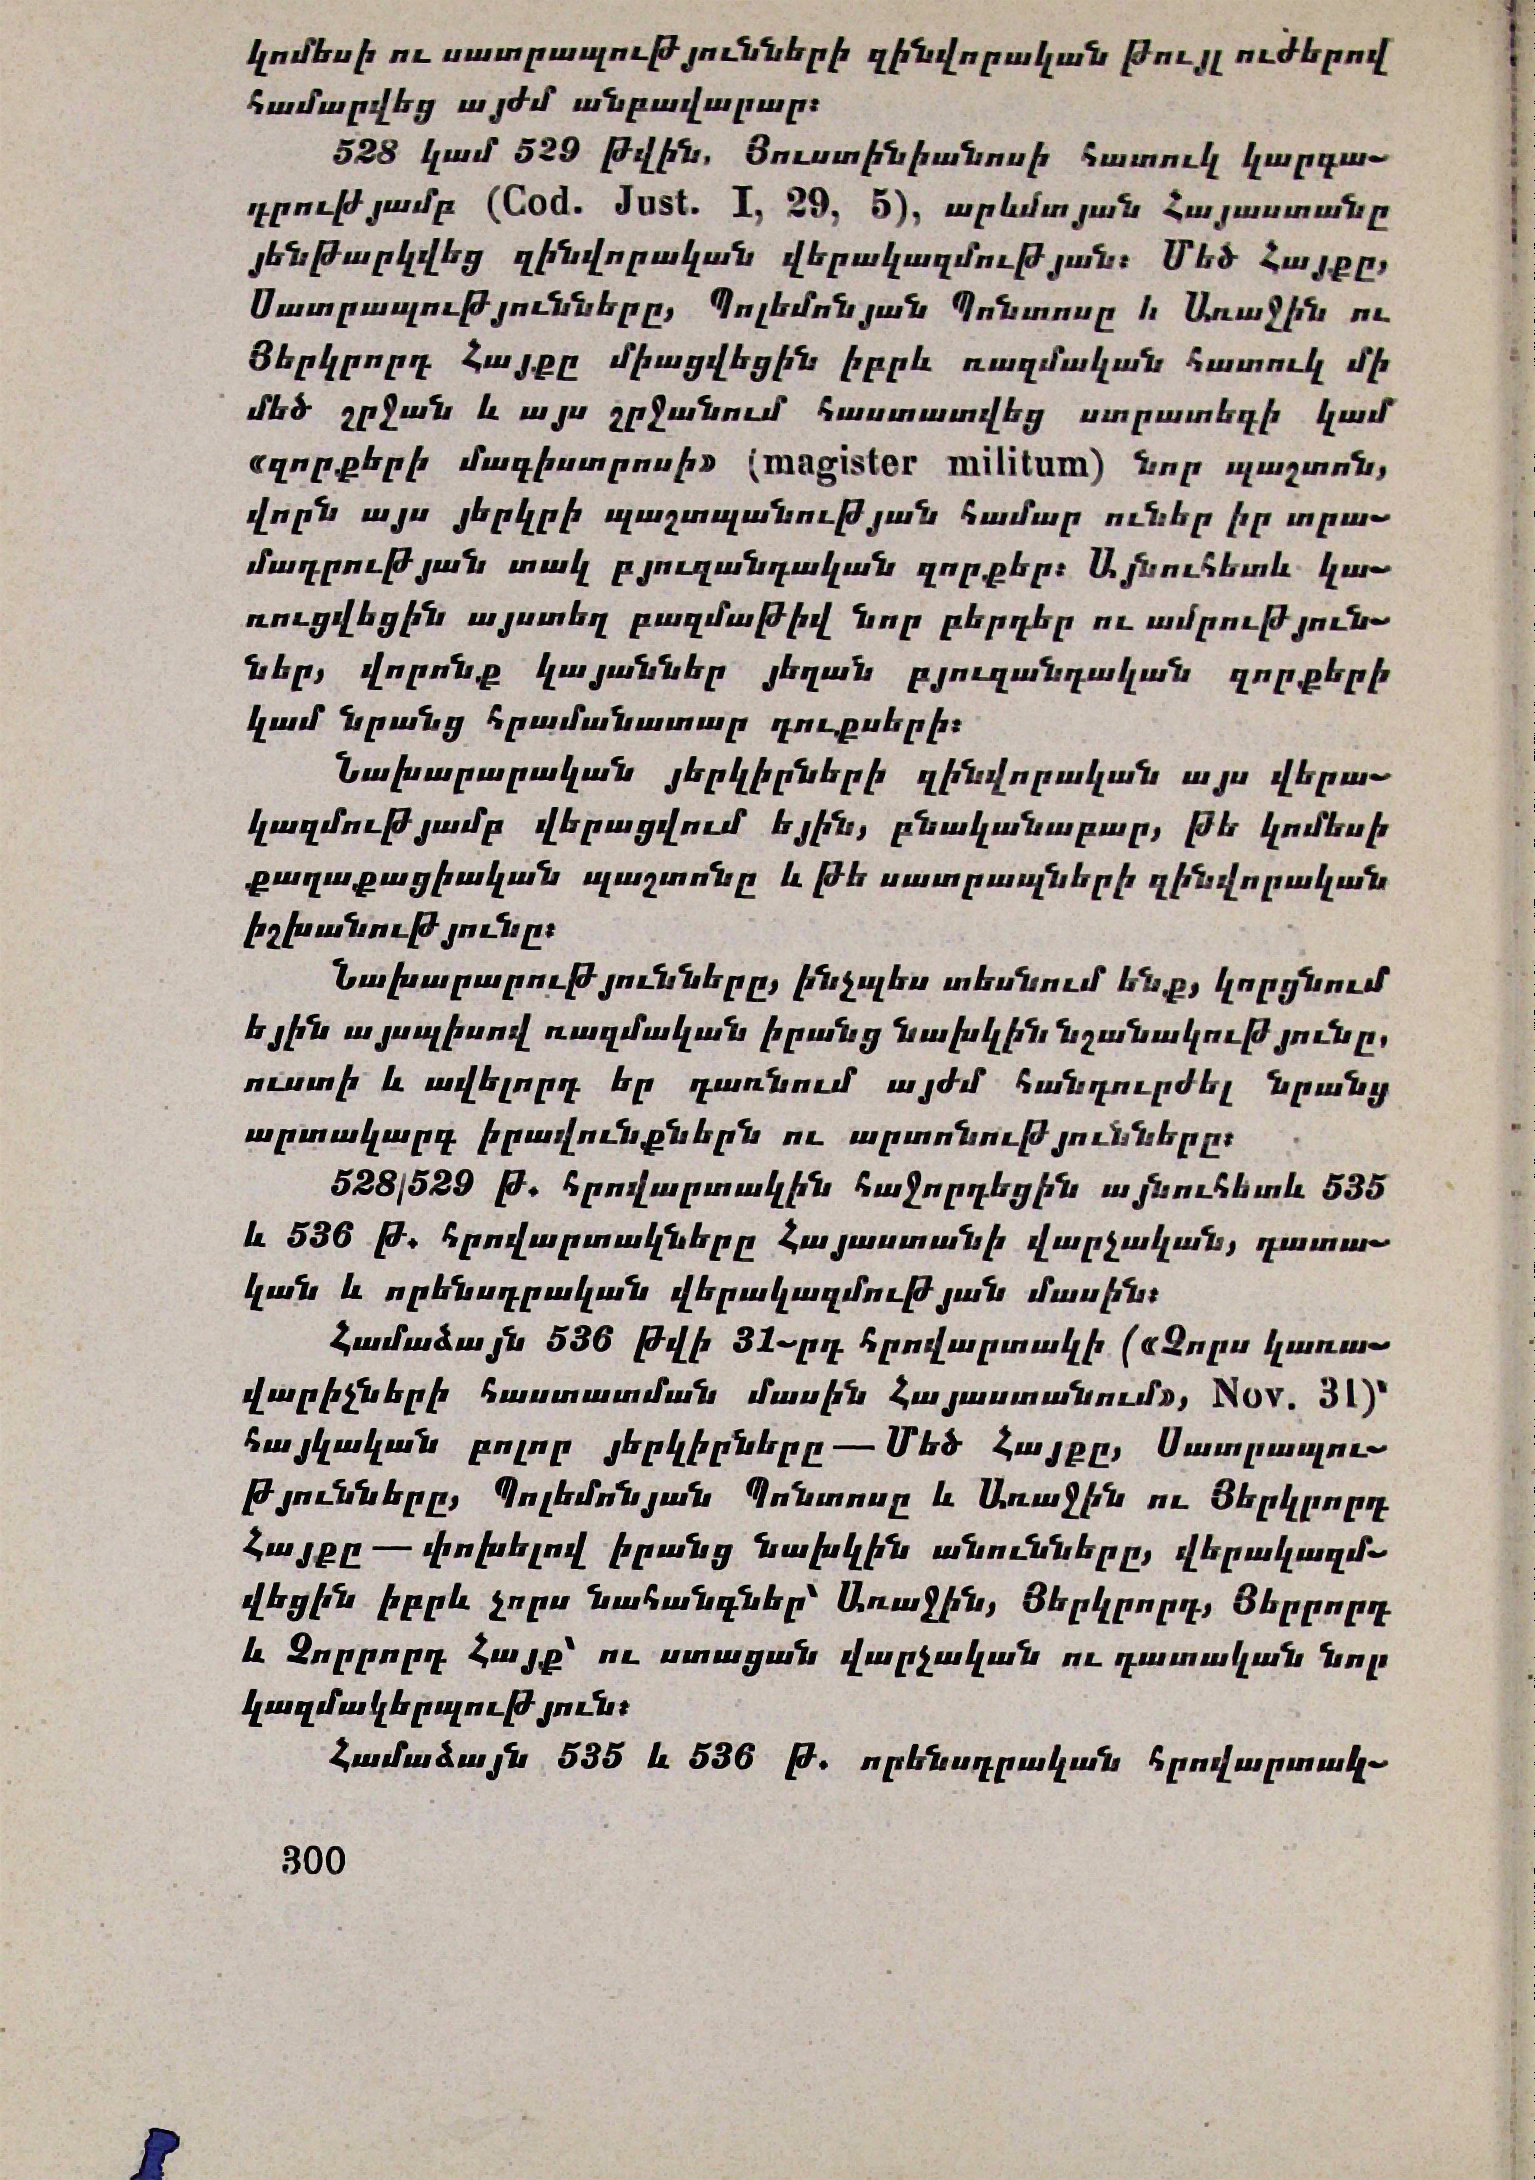 կոմեսի ու սատրապությունների զինվորական թույլ ուժերով
համարվեց այժմ անբավարար։
528 կամ 529 թվին. Յուստինիանոսի հատուկ կարգա-
դրությամբ (Cod. Just. I, 29, 5), արևմտյան Հայաստանը
յենթարկվեց զինվորական վերակազմության։ Մեծ Հայքը,
Սատրապությունները, Պոլեմոնյան Պոնտոսը և Առաջին ու
Յերկրորդ Հայքը միացվեցին իբրև ռազմական հատուկ մի
մեծ շրջան և այս շրջանում հաստատվեց ստրատեգի կամ
«զորքերի մագիստրոսի» (magister militum) նոր պաշտոն,
վորն այս յերկրի պաշտպանության համար ուներ իր տրա-
մադրության տակ բյուզանդական զորքեր։ Այնուհետև կա-
ռուցվեցին այստեղ բազմաթիվ նոր բերդեր ու ամրություն-
ներ, վորոնք կայաններ յեղան բյուզանդական զորքերի
կամ նրանց հրամանատար դուքսերի։
Նախարարական յերկիրների զինվորական այս վերա-
կազմությամբ վերացվում եյին, բնականաբար, թե կոմեսի
քաղաքացիական պաշտոնը և թե սատրապների զինվորական
իշխանությունը։
Նախարարությունները, ինչպես տեսնում ենք, կորցնում
եյին այսպիսով ռազմական իրանց նախկին նշանակությունը,
ուստի և ավելորդ եր դառնում այժմ հանդուրժել նրանց
արտակարգ իրավունքներն ու արտոնությունները։
528/529 թ. հրովարտակին հաջորդեցին այնուհետև 535
և 536 թ. հրովարտակները Հայաստանի վարչական, դատա-
կան և որենսդրական վերակազմության մասին։
Համաձայն 536 թվի 31-րդ հրովարտակի («Չորս կառա-
վարիչների հաստատման մասին Հայաստանում», Nov. 31)՝
հայկական բոլոր յերկիրները — Մեծ Հայքը, Սատրապու-
թյունները, Պոլեմոնյան Պոնտոսը և Առաջին ու Յերկրորդ
Հայքը — փոխելով իրանց նախկին անունները, վերակազմ-
վեցին իբրև չորս նահանգներ՝ Առաջին, Յերկրորդ, Յերրորդ
և Չորրորդ Հայք՝ ու ստացան վարչական ու դատական նոր
կազմակերպություն։
Համաձայն 535 և 536 թ. որենսդրական հրովարտակ-
300